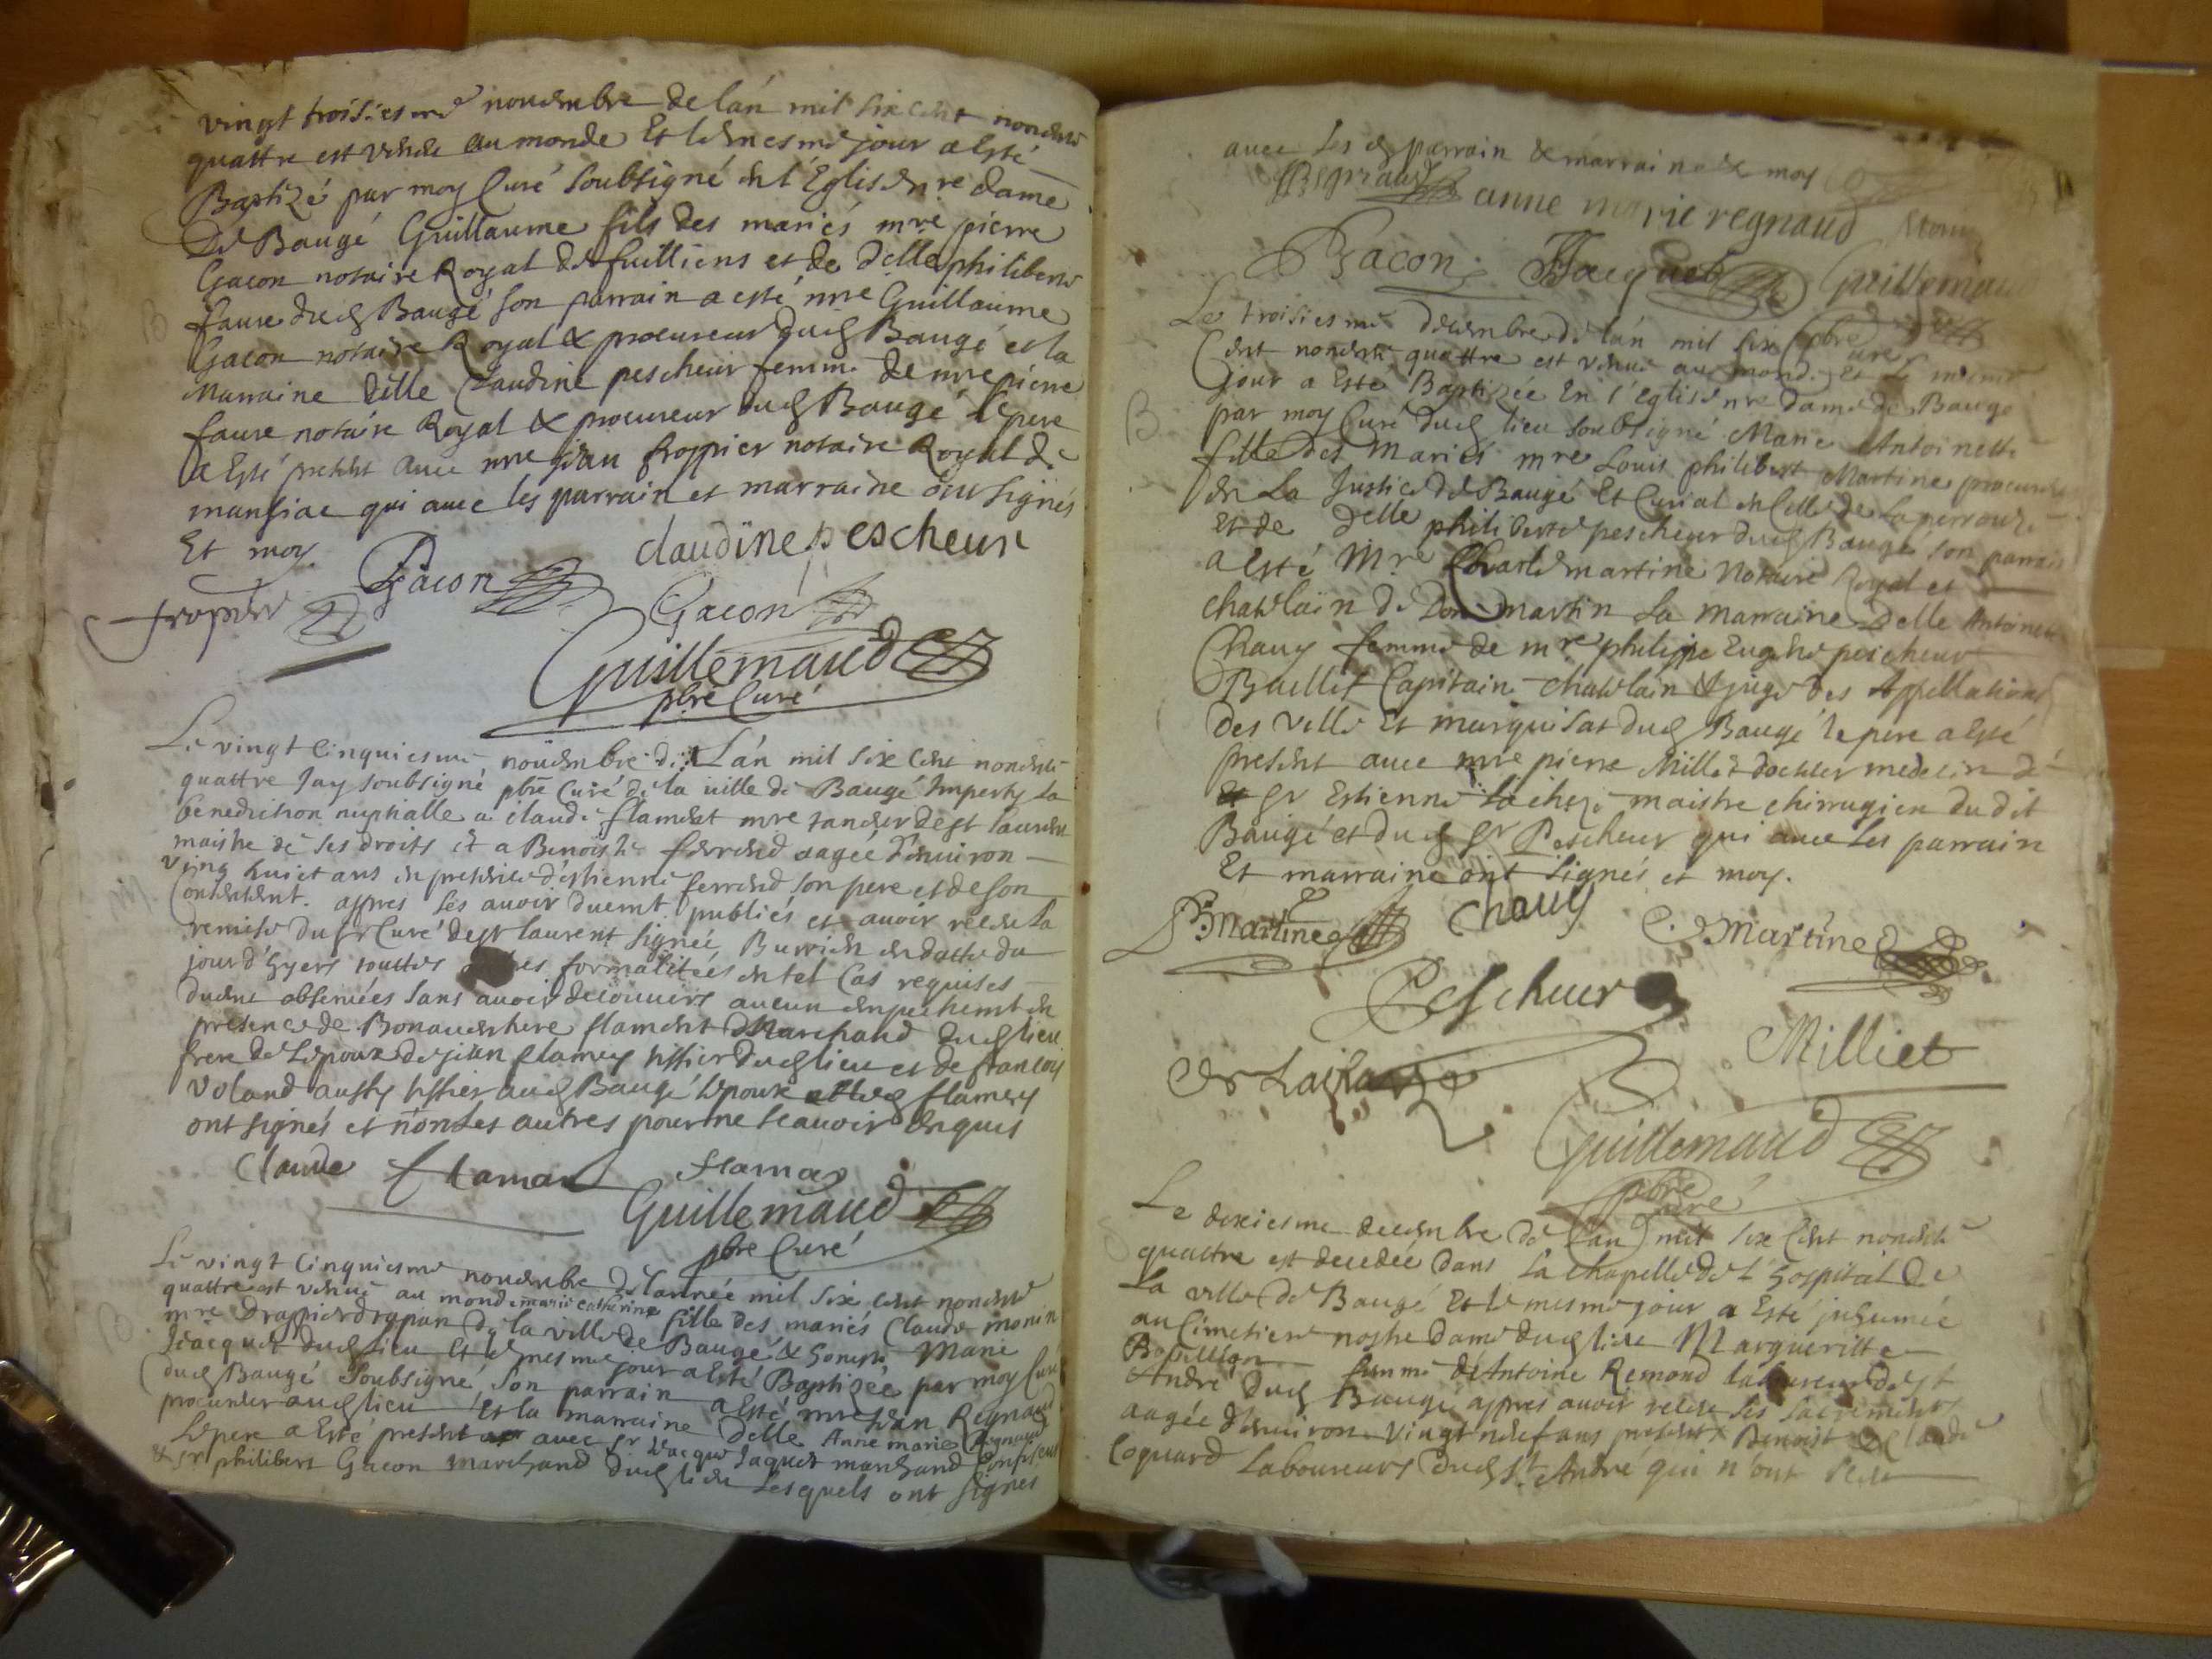 vingt troisiesme nouembre de lán mil six cent nonente
quattre est venue au monde Et le mesme jour a esté
Baptizé par moy Curé soubsigné en l'Eglise nre dame
De Baugé Guillaume fils des mariés mre pierre
Gacon notaire Royal de fuilliens et de delle philiberte
faure dud Baugé son parrain a esté mre Guillaume
Gacon notaire Royal & procureur dud Baugé et la
Marraine delle Claudine pescheur femme de mre pierre
faure notaire Royal & procureur dud Baugé le pere
a Esté present auec mre jean froppier notaire Royal de
mansiac qui auec les parrain et marraine ont signés
Et moy.
Gacon claudine pescheur
fropier Gacon
Guillemaud
pbre Curé
Le vingt cinquiesme nouembre de Lán mil six cent nonente
quattre Jay soubsigné pbre Curé de la uille de Baugé Imparty la
benediction nuptialle a claude flament mre tandeur de st laurent
maistre de ses droits et a Benoiste ferrend aagée d'enuiron
ving huict ans en presence d'estienne ferrend son pere et de son
Consentent. appres les auoir duemt publiés et auoir receu la
remise du sr Curé de st laurent signée Burrien en datte du
jour d'hyers touttes formalitées en tel Cas requises
duemt obseruées sans auoir decouuers aucun enpechemt en
presence de Bonauenture flament Marchand dud lieu
frere de Lepoux de jean flamey hssier dud lieu et de francois
Voland aussy hssier aud Baugé Lepoux et led flamey
ont signés et non les autres pour ne scauoir Enquis
Claude flaman flamay
Guillemaud
pbre Curé
Le vingt cinquiesme nouembre de lannée mil six cent nonente
quattre est venue au monde marie catherine fille des mariés Claude monin
mre Drappier drapan de la ville de Baugé & honeste Marie
Jacquet dud lieu Et le mesme jour a esté Baptizée par moy Curé
dud Baugé soubsigné, son parrain a esté mre jean Regnaud
procureur aud lieu Et la marraine delle Anne marie Regnaud
Le pere a Esté present auec sr Jacque Jaquet marchand
& sr philibert Gacon marchand dud lieu Lesquels ont signés
auec les d parrain & marraine & moy
Regnaud anne marie regnaud Monin
Gacon Jacquet Guillemaud
pbre Curé
Le troisiesme decembre de lán mil six
Cent nonente quattre est venue au monde et le mesme
jour a Esté Baptizée En l'Eglise nre dame de Baugé
par moy Curé dud lieu soubsigné Marie Antoinette
fille des Mariés mre Louis philibert Martine procureur
en La Justice de Baugé Et Curial en Celle de Laperrouze
Et de delle philiberte pescheur dud Baugé son parrain
a Esté Mre Charle martine Notaire Royal et
chatelain de Don martin La marraine delle Antoinette
Chauy femme de mre philippe Eugene pescheur
Baillif Capitaine chatelain & juge des Appellations
des ville Et marquisat dud Baugé le pere a Esté
present auec mre pierre Milliet docteur medecin de
sr Estienne Lacheze maistre chirrugien du dit
Baugé et dud sr Pescheur qui auec les parrain
Et marraine ont signés et moy.
Martine Chauy C Martine
Pescheur
Milliet
Guillemaud
pbre Curé
Le dixiesme decembre de Lan mil six Cent nonente
quattre est decedée dans La chapelle de L'hospital de
La ville de Baugé Et le mesme jour a Esté inhumée
au Cimetiere nostre Dame dud lieu Margueritte
femme de Antoine Remond laboureur de st
André dud Baugé appres auoir receu les sacrements
aagée d'enuiron vingt neuf ans presents Benoist & Claude
Coquard Laboureurs dud St. André qui n'ont sceu